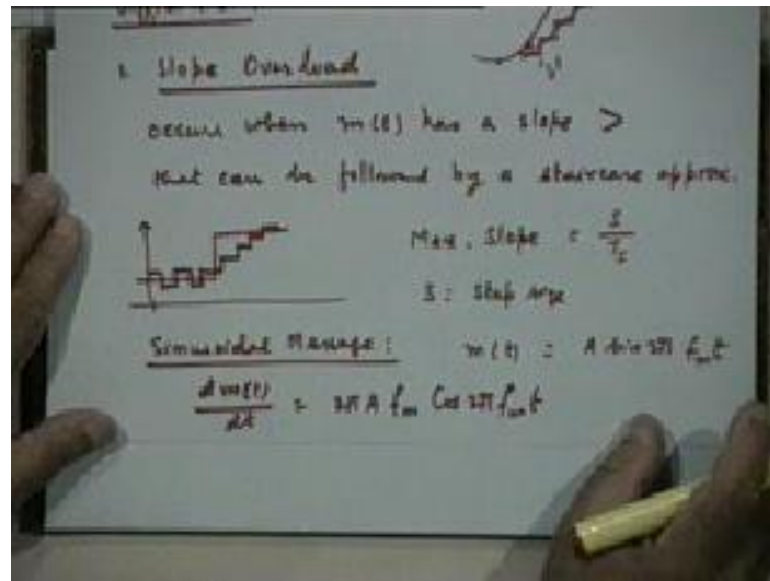 Slope Overload
occurs when m(t) has a slope >
that can be followed by a staircase approx.
Max. slope = δ/Ts
δ : step size
Sinusoidal Message : m(t) = A sin 2π fm t
dm(t)/dt = 2π A fm Cos 2π fm t